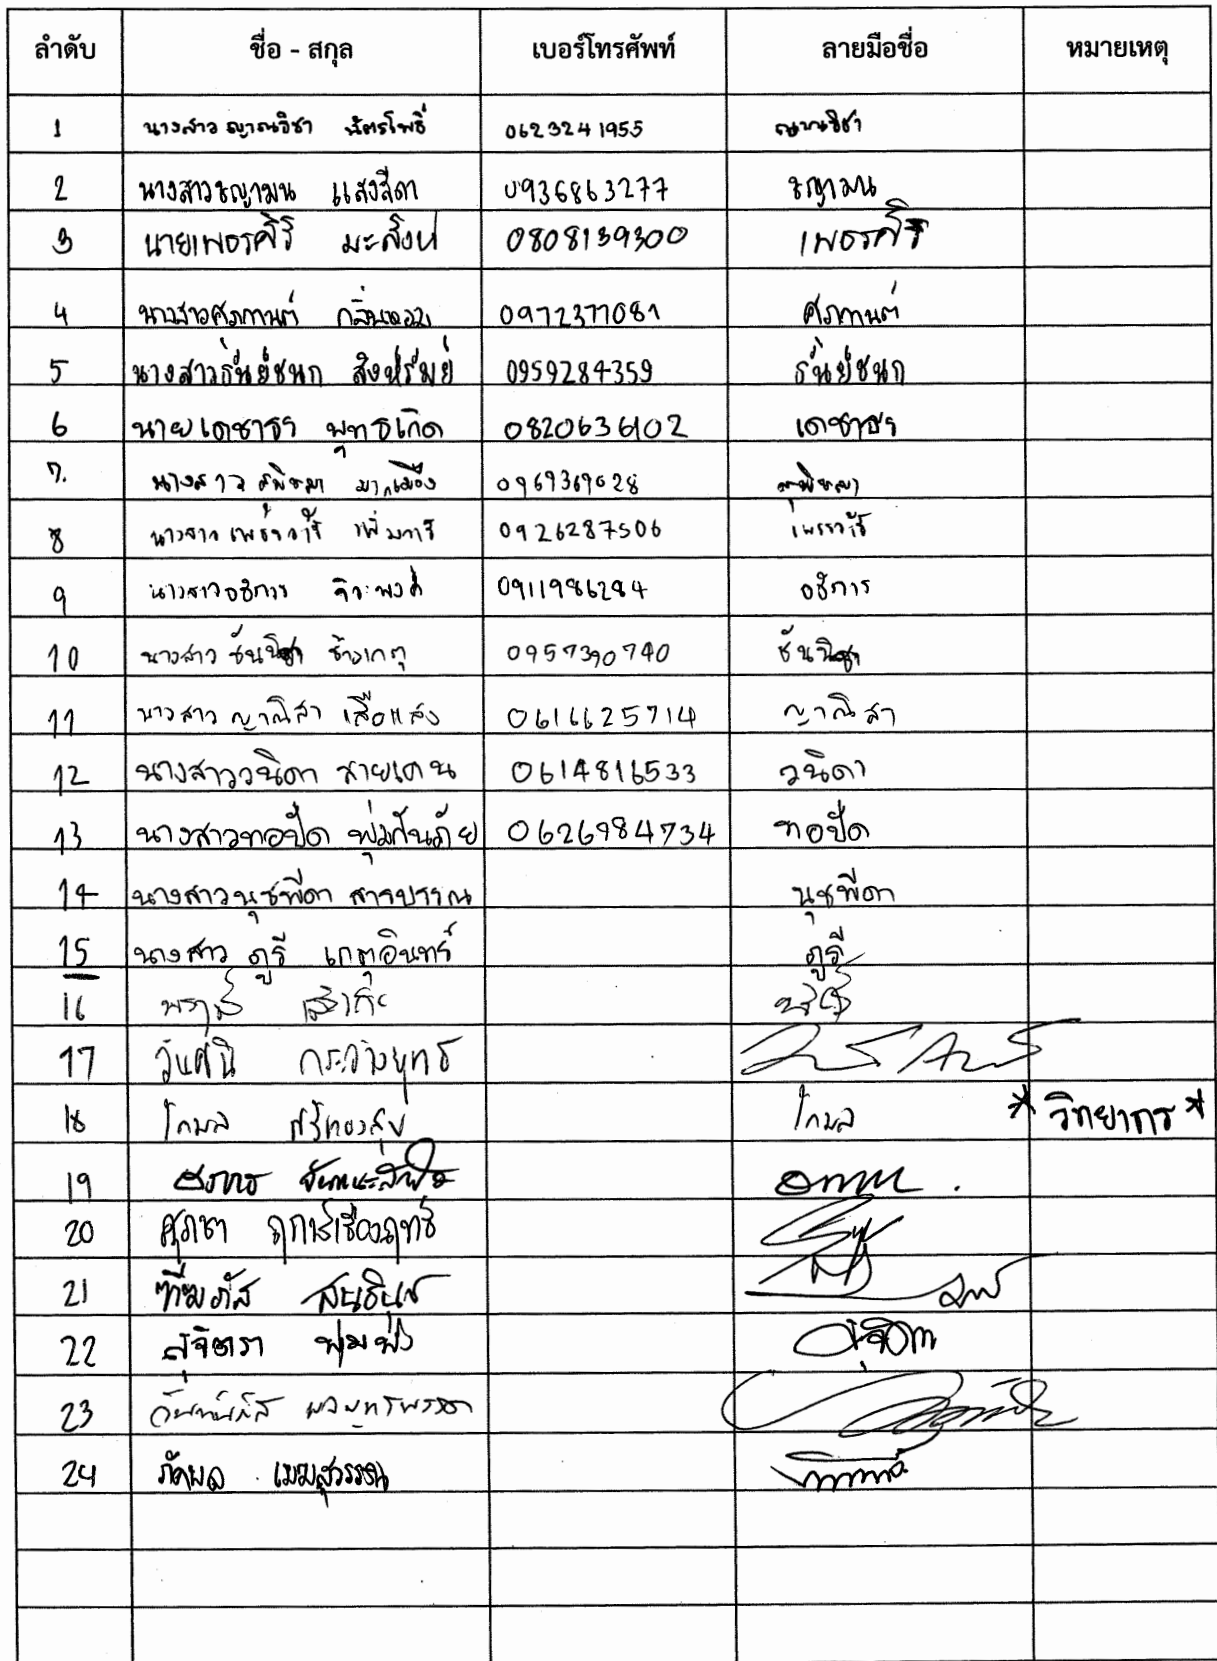 ลำดับ ชื่อ - สกุล เบอร์โทรศัพท์ ลายมือชื่อ หมายเหตุ
1 นางสาว ญาณวิชา ฉัตรโพธิ์ 0623241955 ญาณวิชา
2 นางสาวชญามน แสงสีดา 0936863277 ชญามน
3 นายเพชรศิริ มะสิงห์ 0808139300 เพชรศิริ
4 นางสาวศุภกานต์ กลิ่นหอม 0972377681 ศุภกานต์
5 นางสาวธันย์ชนก สิงห์รัมย์ 0959284359 ธันย์ชนก
6 นายเดชาธร พุทธเกิด 0820636102 เดชาธร
7. นางสาว 0969369628
8 นางสาว เพชรวารี 0926287506 เพชรวารี
9 นางสาวอธิการ จิระพงศ์ 0911986284 อธิการ
10 นางสาว ชันนิชา ช้างเกตุ 0957390740 ชันนิชา
11 นางสาว ญาณิสา เสือแสง 0616625714 ญาณิสา
12 นางสาววนิดา สายเดน 0614816533 วนิดา
13 นางสาวทอปัด พุ่มกันภัย 0626984734 ทอปัด
14 นางสาวนุชพีดา สารบรรณ นุชพีดา
15 นางสาว ภูรี เกตุอินทร์ ภูรี
16
17 วันศนิ กระจ่างยุทธ
18 โกมล ศรีทองสุข โกมล * วิทยากร *
19
20 ศุภชา ฤการ์เรืองฤทธิ์
21 สนธินุช
22 สุจิตรา พุ่มพึ่ง สุจิตรา
23
24 ภัคพล เมฆสุวรรณ